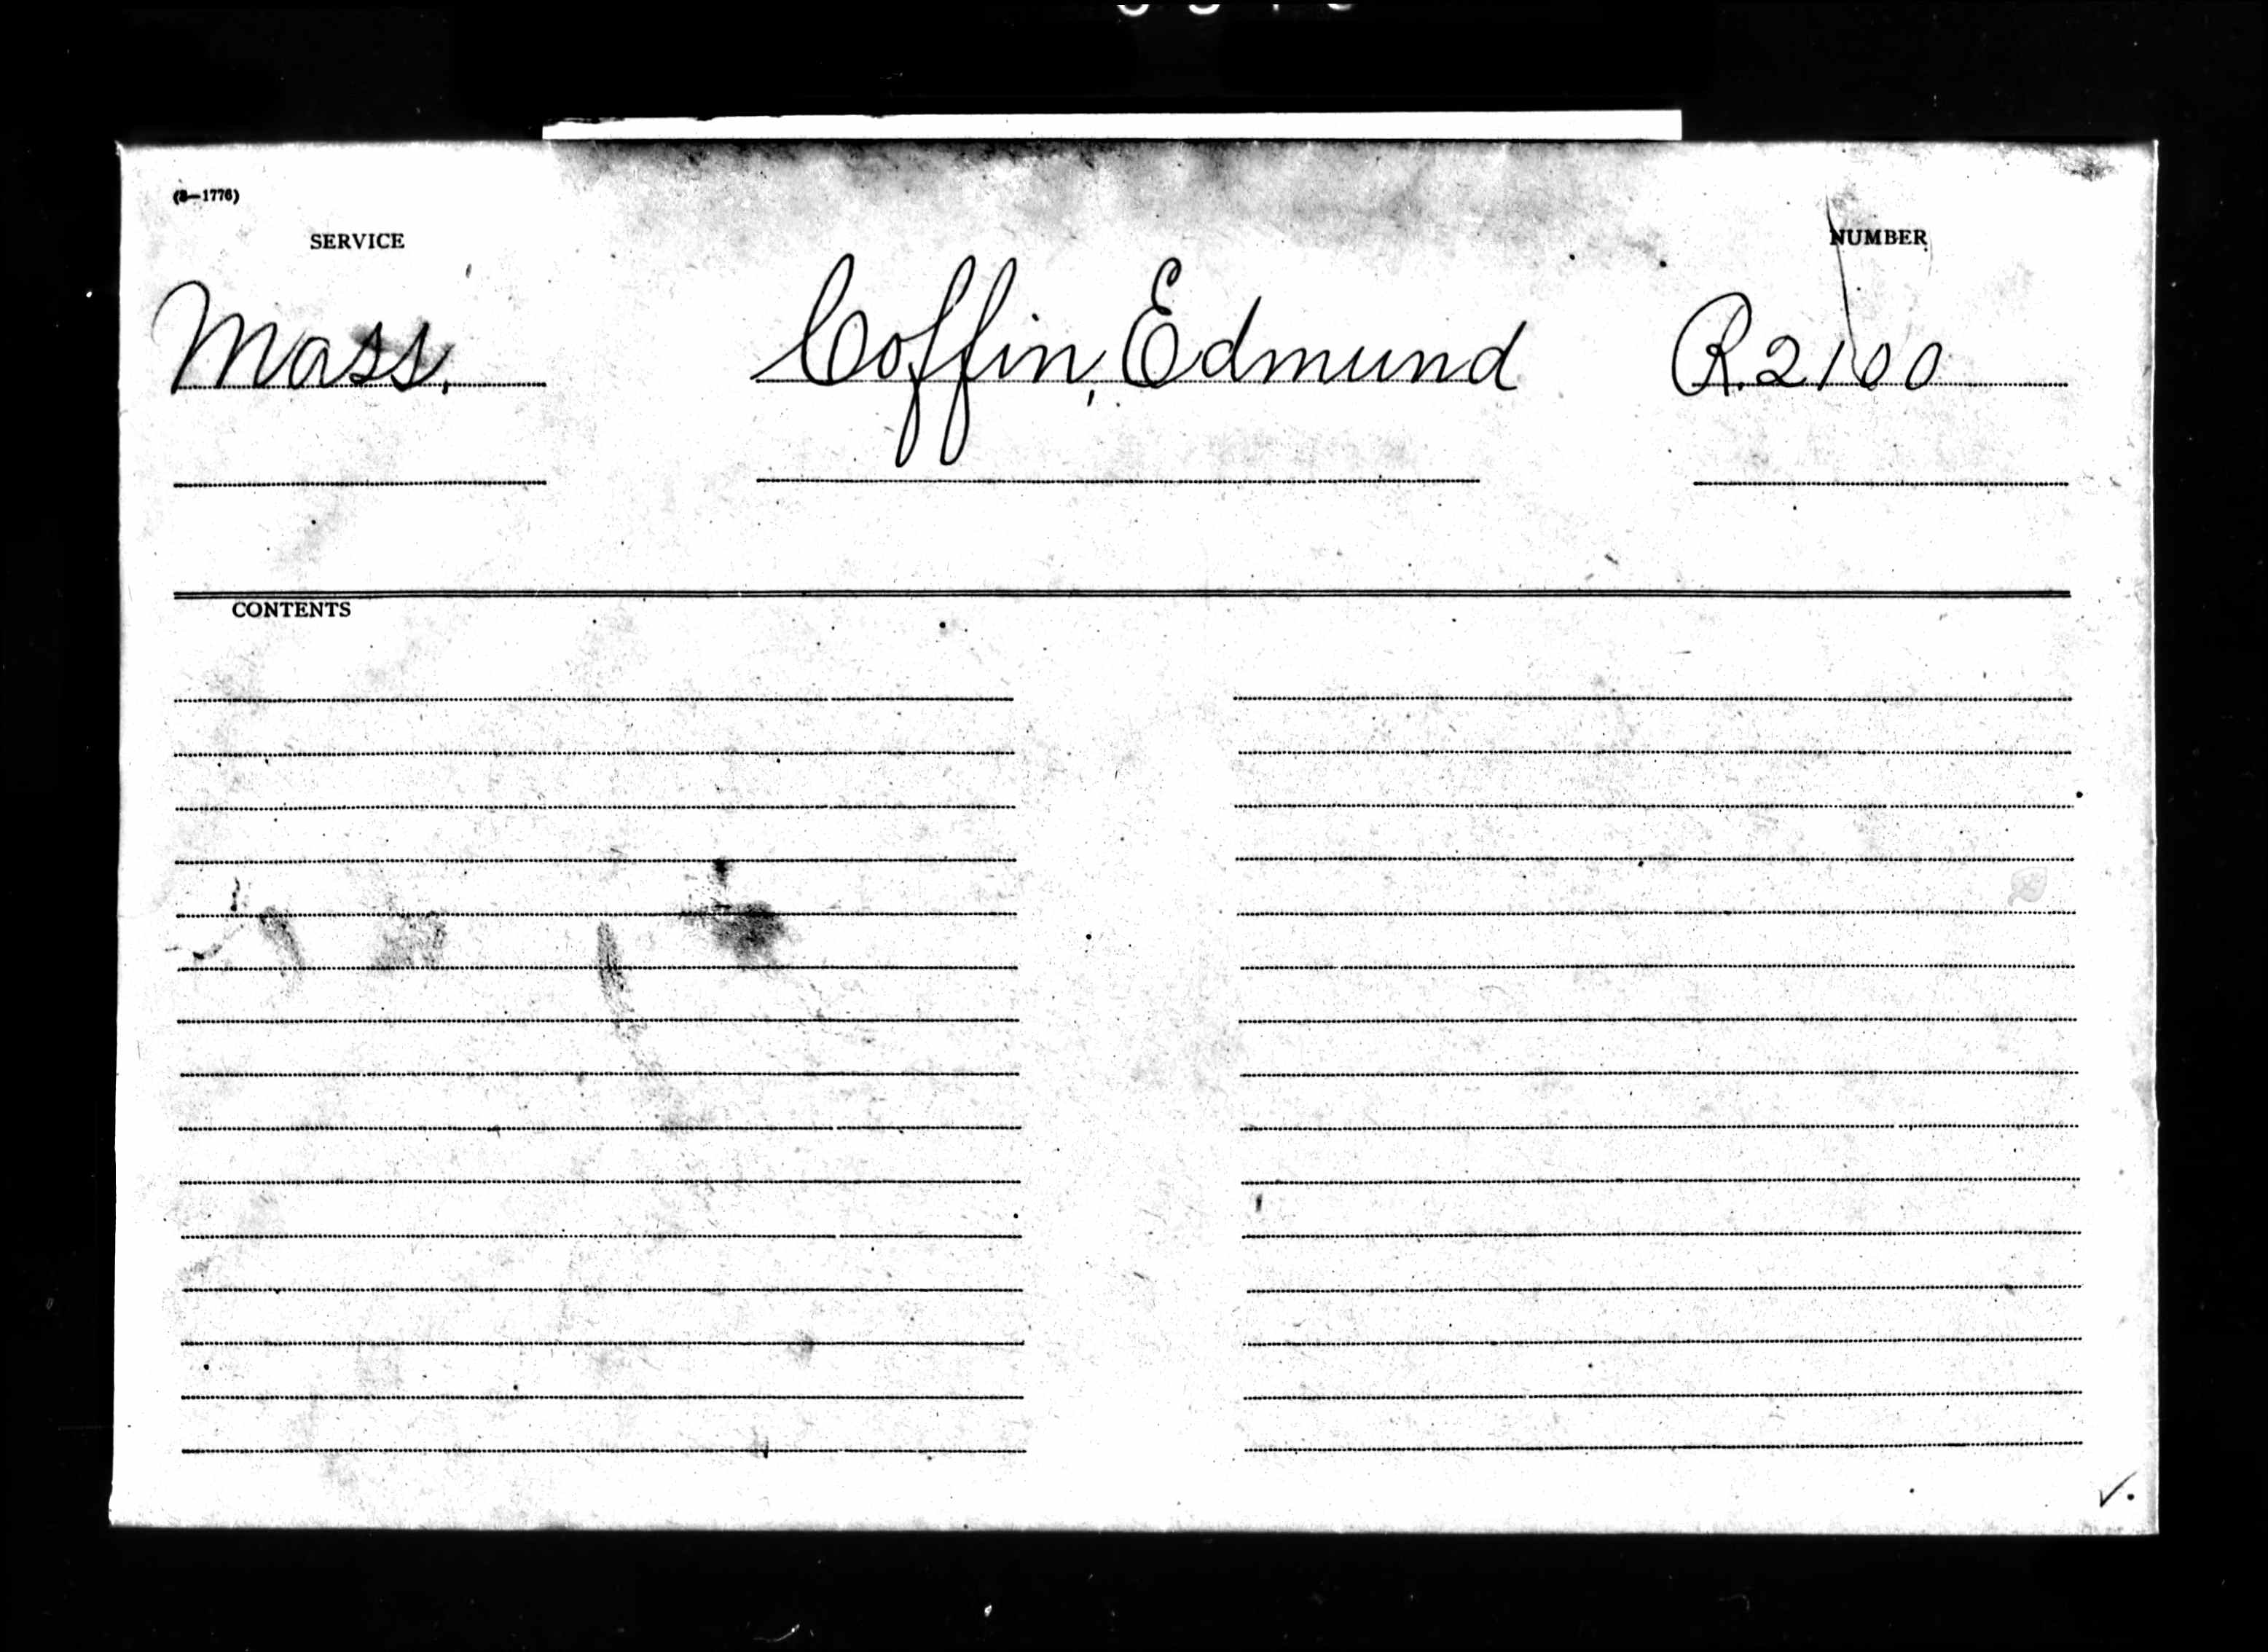 (3—1776)
SERVICE
NUMBER
Mass.
Coffin, Edmund
R.2100
CONTENTS